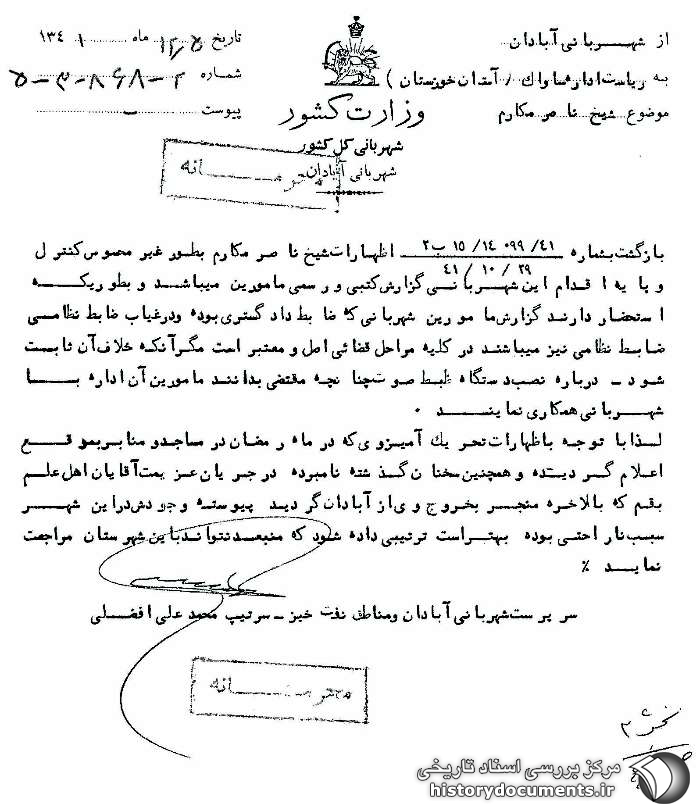 از شهربانی آبادان
به ریاست اداره ساواک / آستان خوزستان )
موضوع شیخ ناصر مکارم
وزارت کشور
شهربانی کل کشور
شهربانی آبادان
تاریخ ماه ۱۳۴۱
شماره
پیوست
محرمانه
بازگشت بشماره ۱۴۰۹۹/۴۱ / ۱۵ ب۲ اظهارات شیخ ناصر مکارم بطور غیر محسوس کنترل
۲۹ / ۱۰ / ۴۱
و پایه اقدام این شهربانی گزارش کتبی و رسمی مامورین میباشد و بطوریکه
استحضار دارند گزارش مامورین شهربانی که ضابط دادگستری بوده ودرغیاب ضابط نظامی
ضابط نظامی نیز میباشند در کلیه مراحل قضائی اصل و معتبر است مگر آنکه خلاف آن ثابت
شود ـ درباره نصب دستگاه ظبط صوت چنانچه مقتضی بدانند مامورین آن اداره با
شهربانی همکاری نمایند .
لذا با توجه باظهارات تحریک آمیزوی که در ماه رمضان در مساجد و منابر بموقع
اعلام گردیده و همچنین سخنان گذشته نامبرده در جریان عزیمت آقایان اهل علم
بقم که بالاخره منجر بخروج وی از آبادان گردید پیوسته وجودش دراین شهر
سبب ناراحتی بوده بهتراست ترتیبی داده شود که منبعد نتواند باین شهرستان مراجعت
نماید ٪
سرپرست شهربانی آبادان ومناطق نفت خیز ـ سرتیپ محمد علی افضلی
محرمانه
بخش ۳
مرکز بررسی اسناد تاریخی
historydocuments.ir